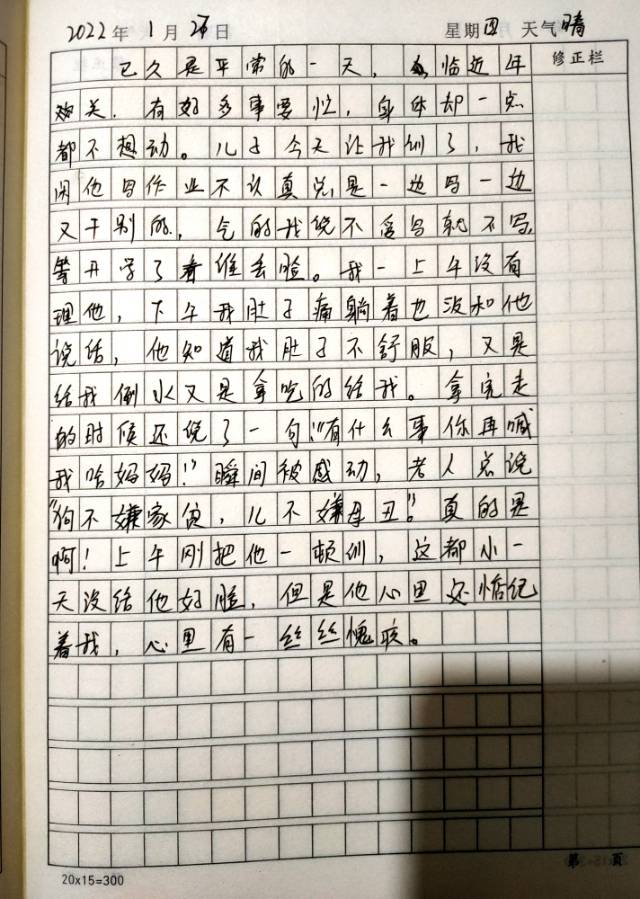 2022年 1月 2日 星期四 天气晴
修正栏
已久是平常的一天，临近年
关，有好多事要忙，身体却一点
都不想动。儿子今天让我训了，我
闲他写作业不认真说是一边写一边
又干别的，气的我说不爱写就不写，
等开学了看谁丢脸。我一上午没有
理他，下午我肚子痛躺着也没和他
说话，他知道我肚子不舒服，又是
给我倒水又是拿吃的给我。拿完走
的时候还说了一句："有什么事你再喊
我哈妈妈！"瞬间被感动，老人总说
"狗不嫌家贫，儿不嫌母丑"。真的是
啊！上午刚把他一顿训，这都小一
天没给他好脸，但是他心里还惦记
着我，心里有一丝丝愧疚。
第 页
20x15=300